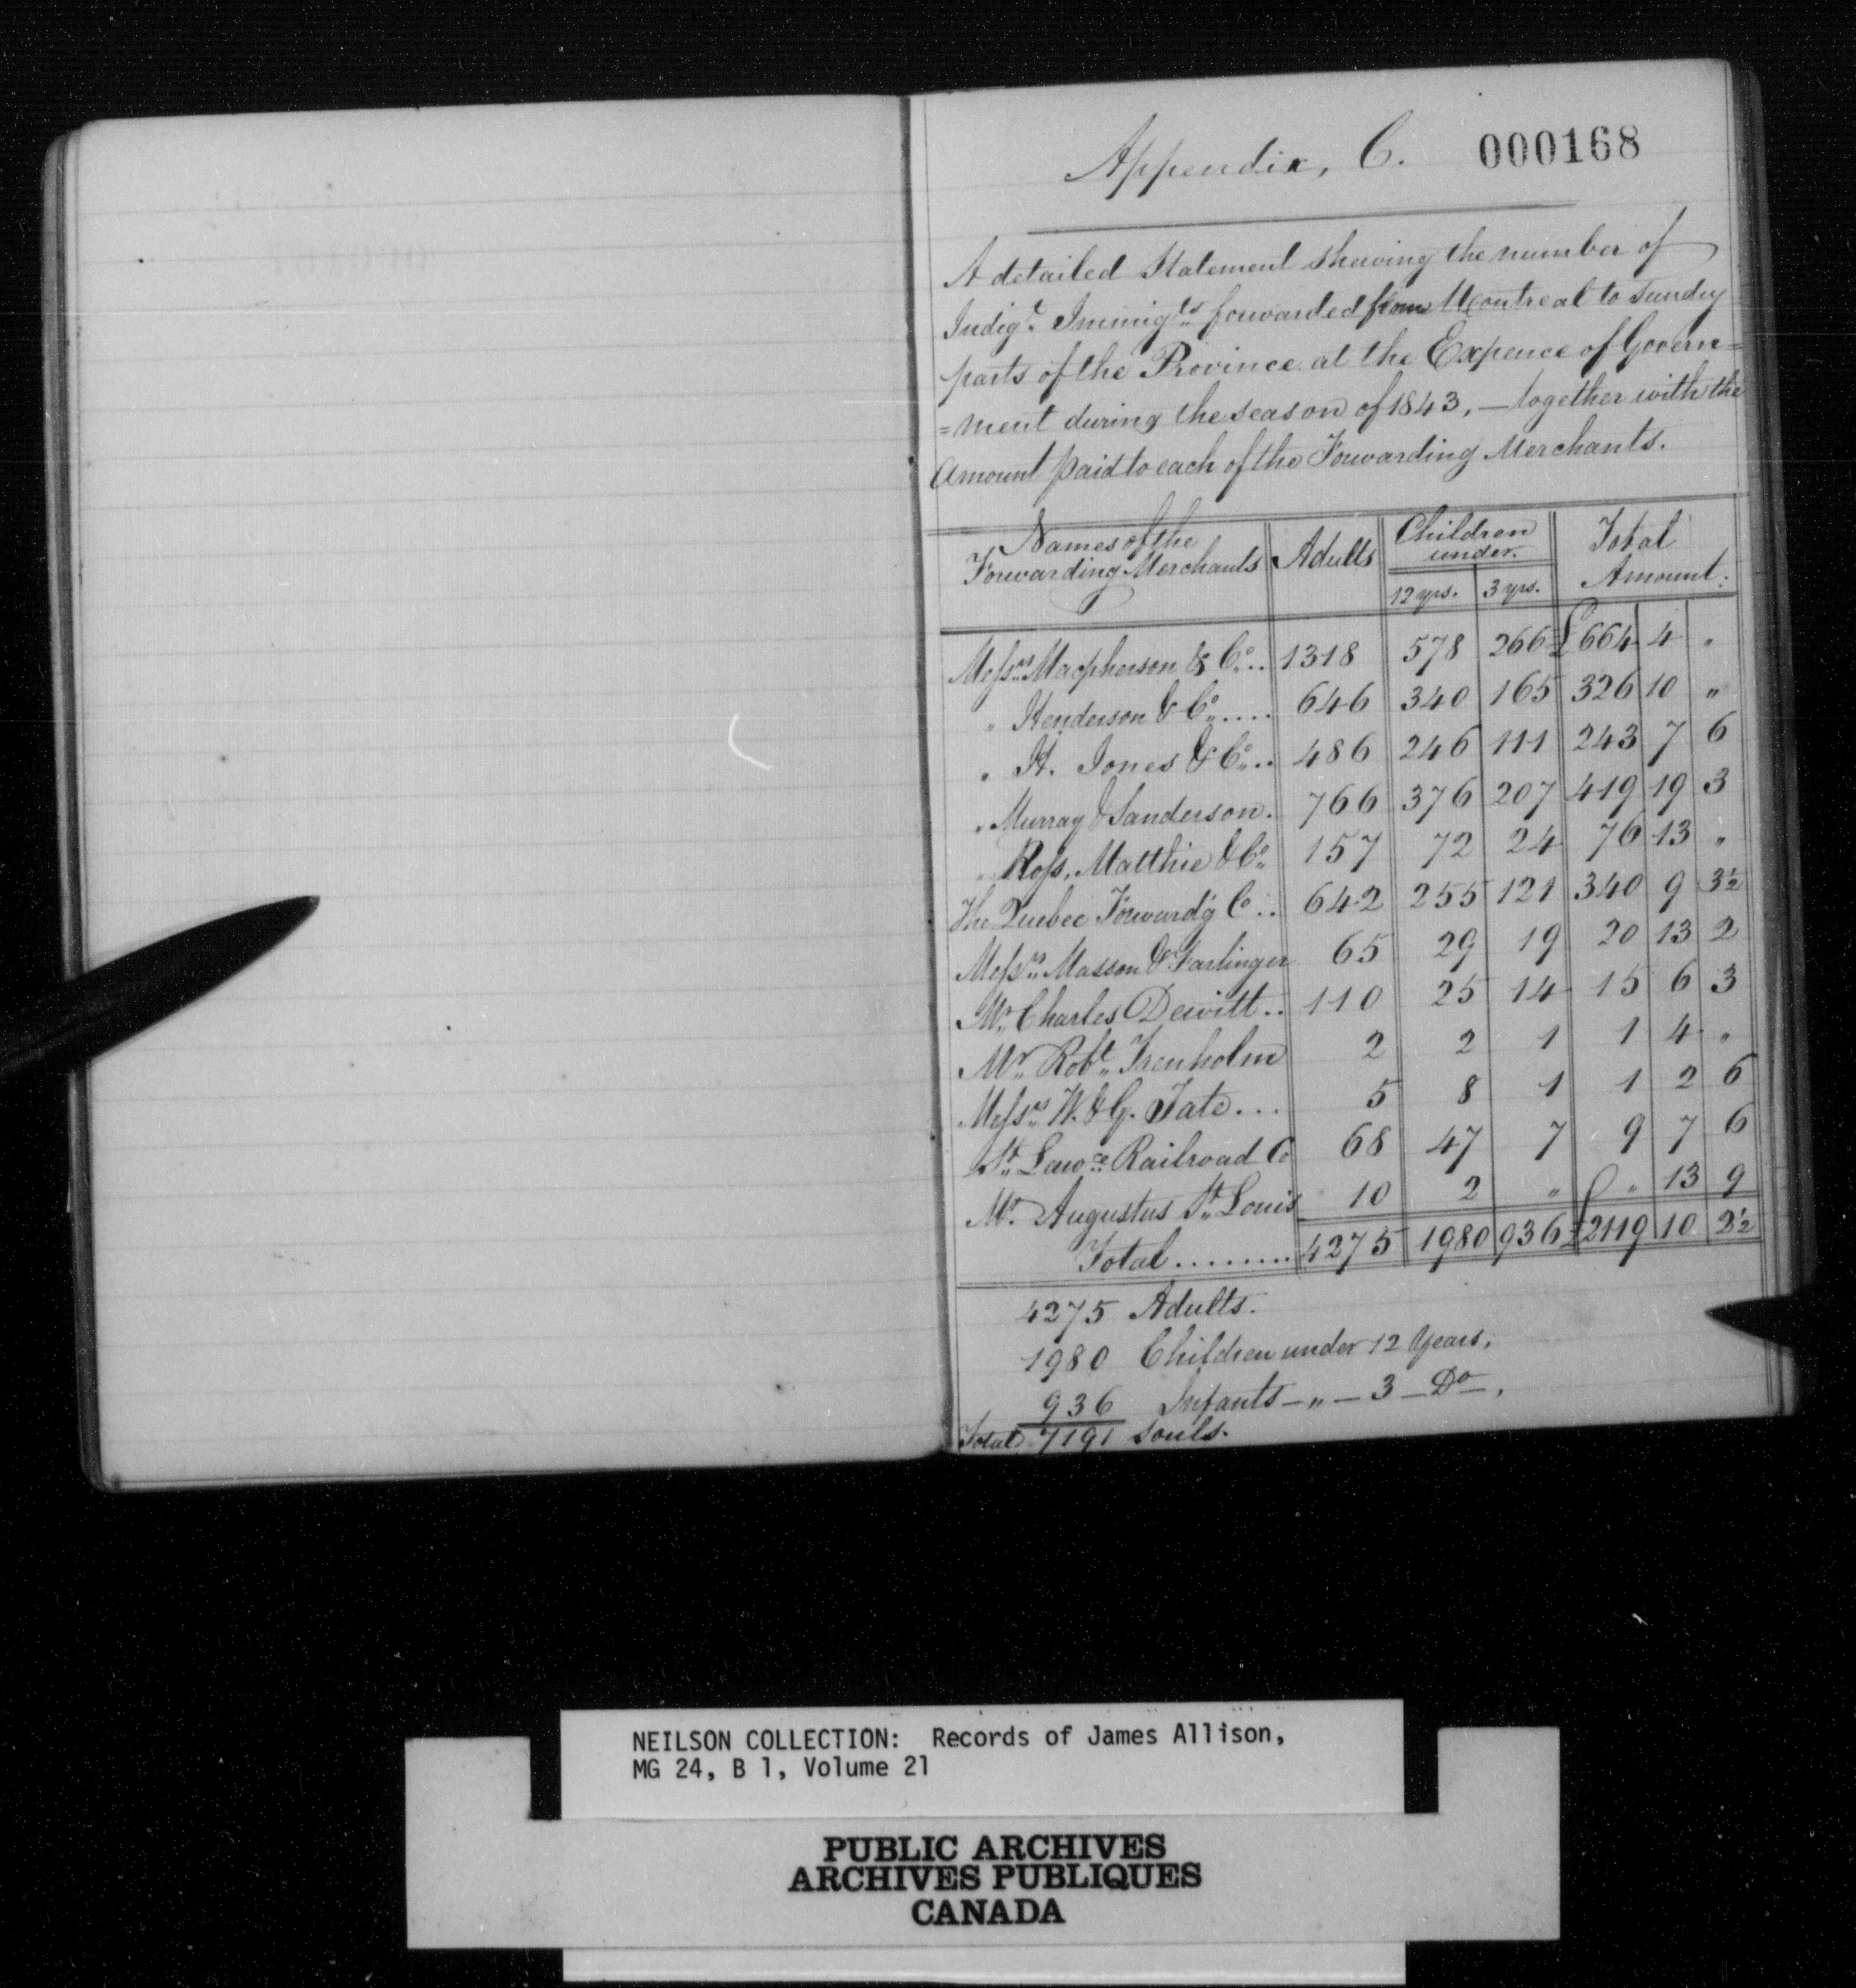 Appendix, C. 000168
A detailed Statement shewing the number of
Indigt. Immigts. forwarded from Montreal to sundry
parts of the Province at the Expence of Govern=
=ment during the season of 1843, — together with the
Amount paid to each of the Forwarding Merchants.
Names of the Forwarding Merchants Adults Children under. 12 yrs. 3 yrs. Total Amount.
Messrs. Macpherson & Co... 1318 578 266 £664 4 "
" Henderson & Co..... 646 340 165 326 10 "
" H. Jones & Co... 486 246 111 243 7 6
" Murray & Sanderson. 766 376 207 419 19 3
" Ross, Matthie & Co. 157 72 24 76 13 "
The Quebec Forwardg Co... 642 255 121 340 9 3½
Messrs. Masson & Farlinger 65 29 19 20 13 2
Mr. Charles Dewitt.. 110 25 14 15 6 3
Mr. Robt. Trenholm 2 2 1 1 4 "
Messrs. W. & G. Tate... 5 8 1 1 2 6
St. Lawce. Railroad Co 68 47 7 9 7 6
Mr. Augustus St. Louis 10 2 " " 13 9
Total ......... 4275 1980 936 £2119 10 2½
4275 Adults.
1980 Children under 12 Years,
936 Infants — " — 3 — Do —,
Total 7191 souls.
NEILSON COLLECTION: Records of James Allison,
MG 24, B 1, Volume 21
PUBLIC ARCHIVES
ARCHIVES PUBLIQUES
CANADA